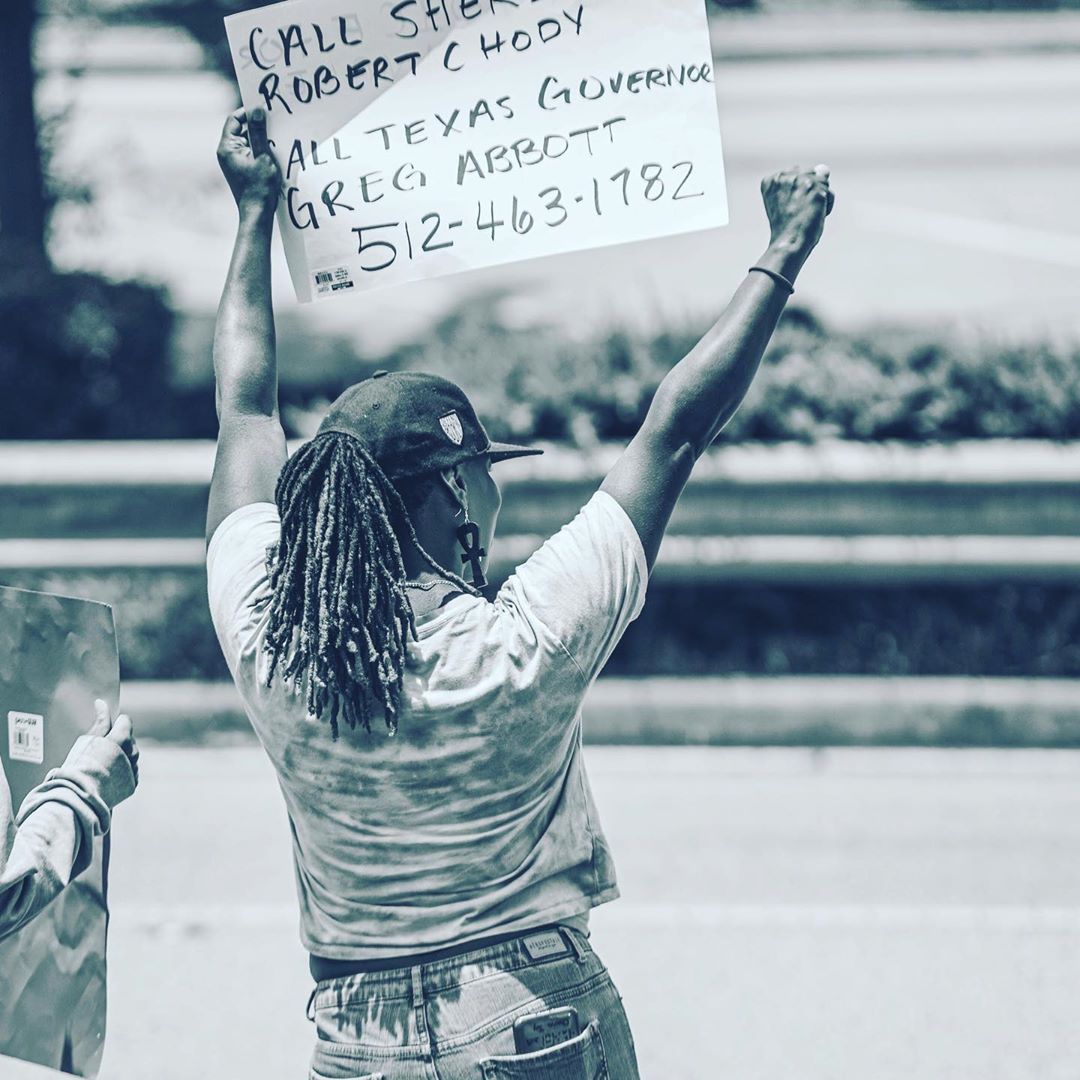 CALL SHER
ROBERT CHODY
CALL TEXAS GOVERNOR
GREG ABBOTT
512-463-1782